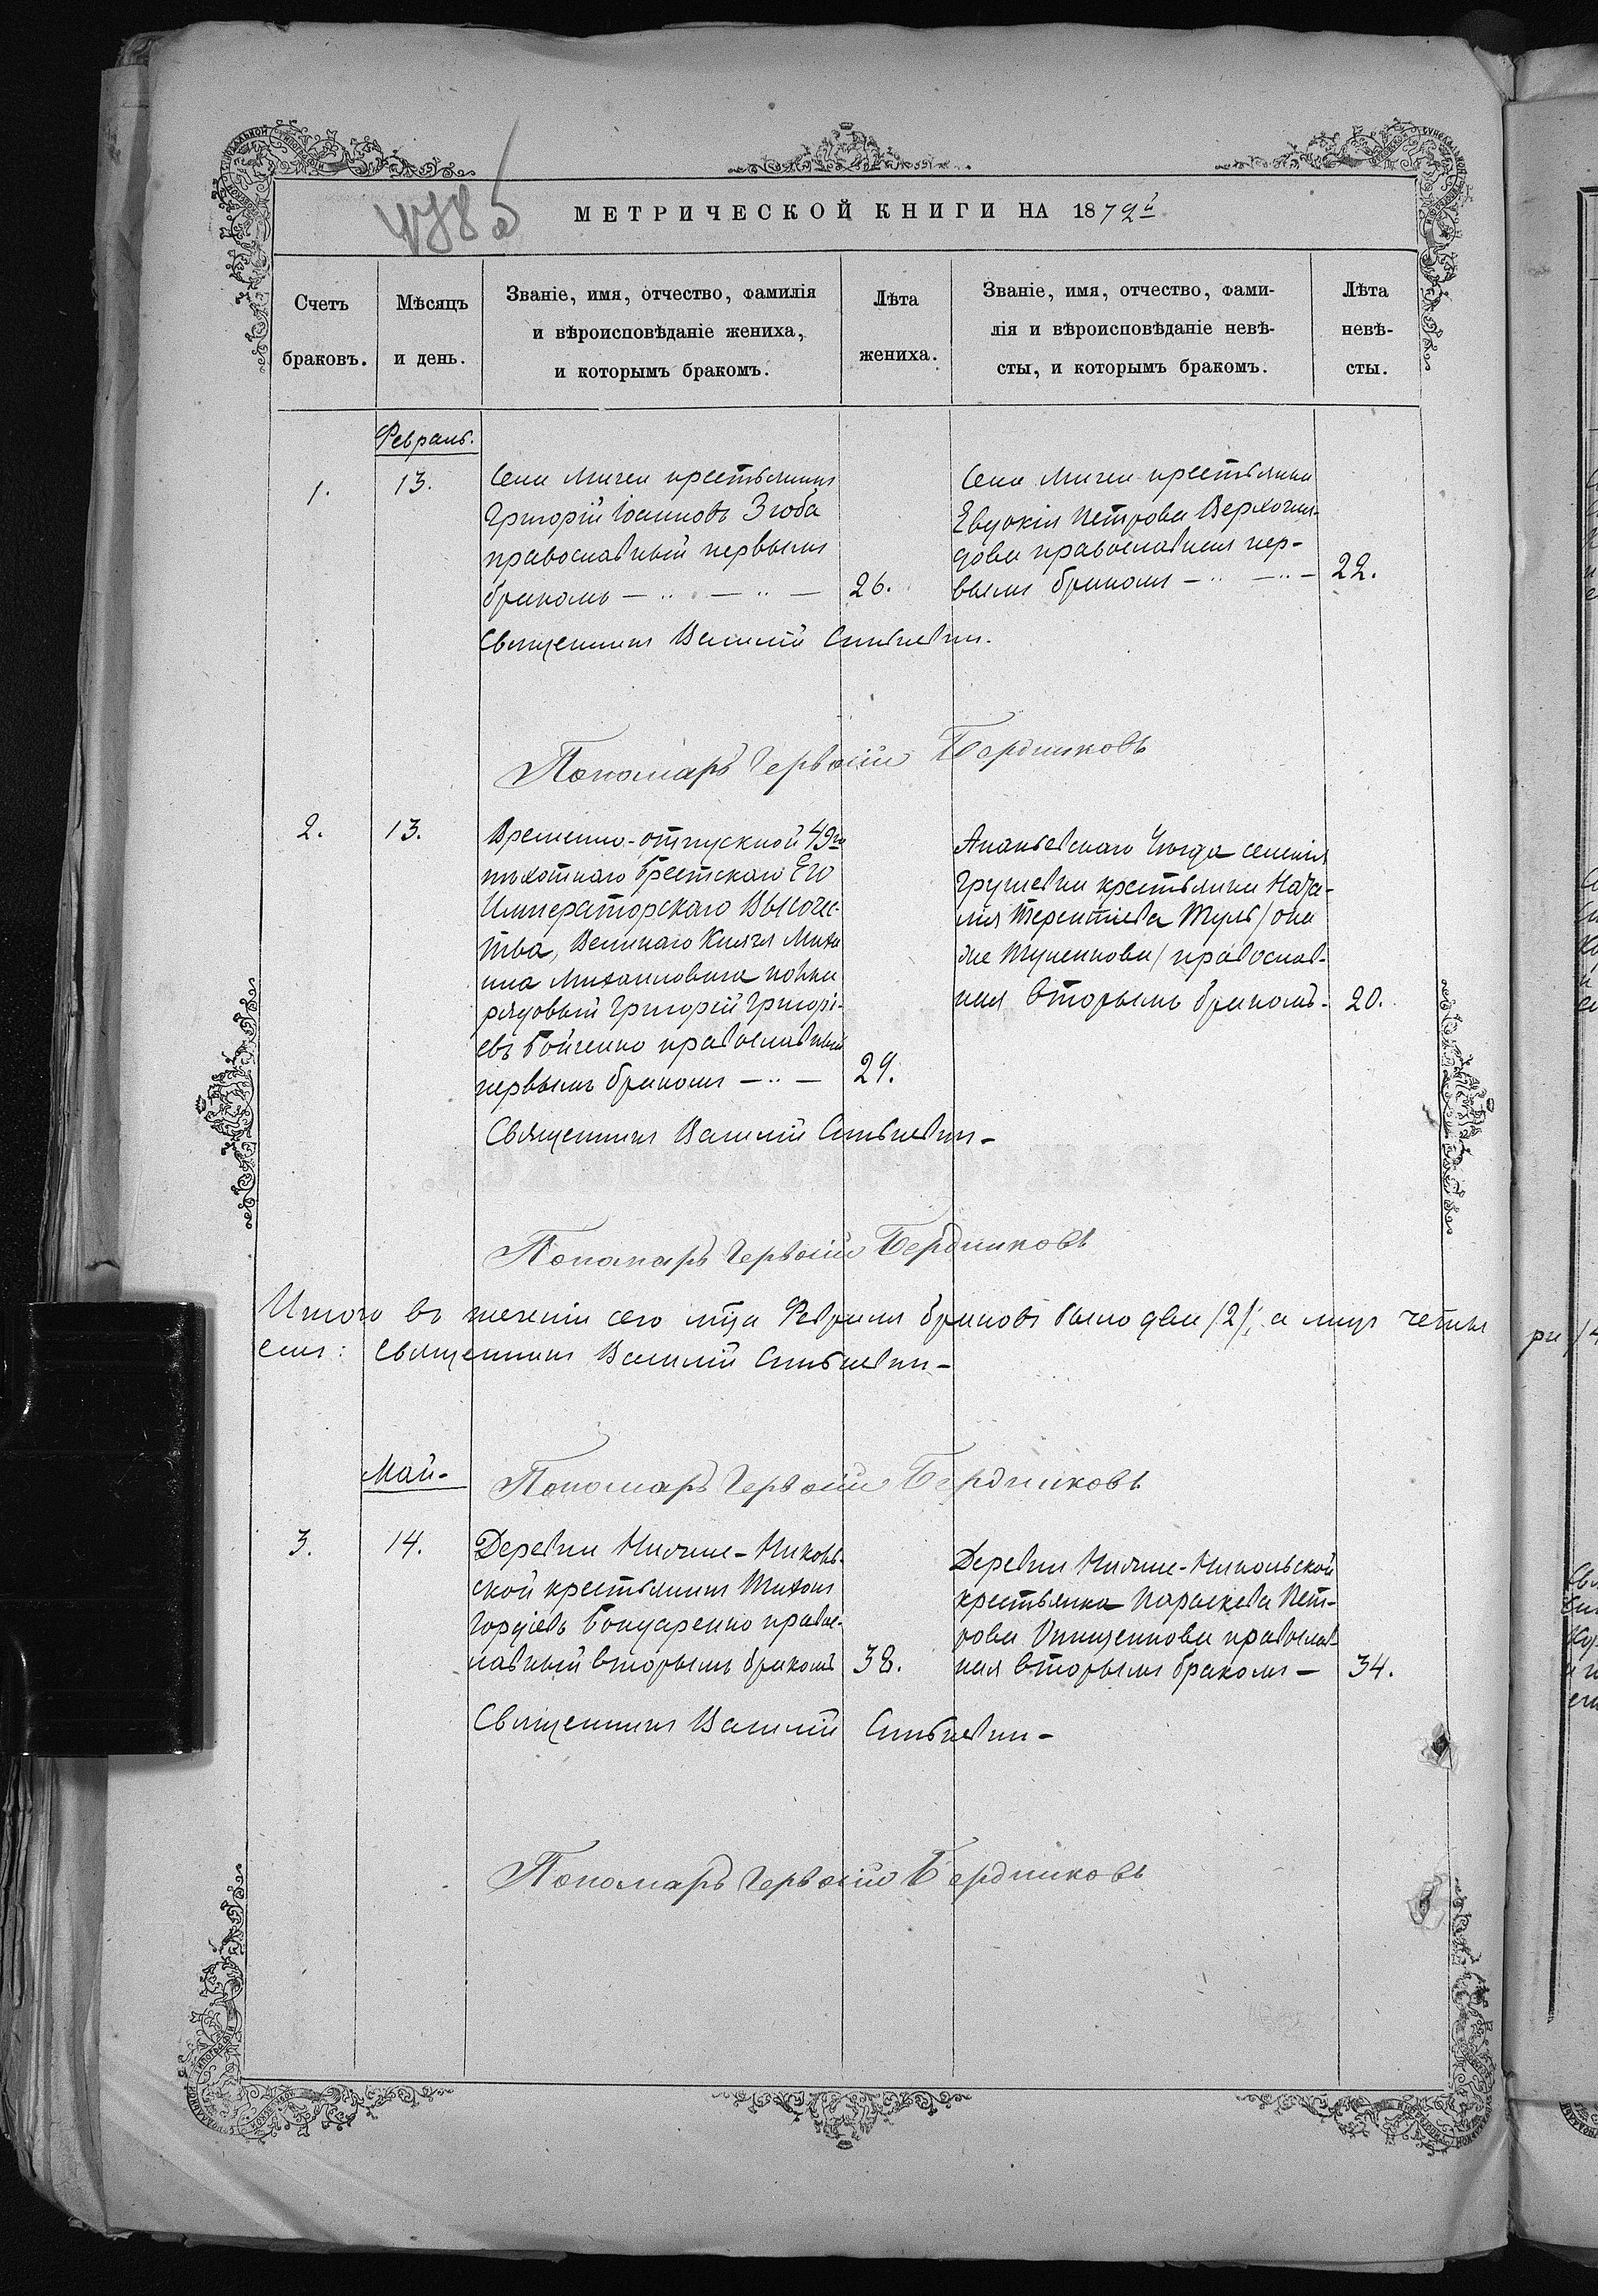 МЕТРИЧЕСКОЙ КНИГИ НА 1872й
Счетъ браковъ.
Мѣсяцъ и день.
Званіе, имя, отчество, фамилія
и вѣроисповѣданіе жениха,
и которымъ бракомъ.
Лѣта жениха.
Званіе, имя, отчество, фами-
лія и вѣроисповѣданіе невѣ-
сты, и которымъ бракомъ.
Лѣта невѣ-
сты.
Февраль.
1.
13.
Села Мигеи крестьянинъ
Григорій Іоанновъ Зюба
православный первымъ
бракомъ
26.
Села Мигеи крестьянка
Евдокія Петрова
православная пер-
вымъ бракомъ
22.
Священникъ Василій
Пономарь Бердниковъ
2.
13.
Временно-отпускной 49го
пѣхотнаго Брестскаго Его
Императорскаго Высоче-
тва, Великаго Князя Миха
ила Михаиловича полка
рядовый Григорій Григорі-
евъ Бойченко православный
первымъ бракомъ
29.
Ананьевскаго уѣзда селенія
Грушевки крестьянка Ната-
лія Терентіева /она
же / православ-
ная вторымъ бракомъ-
20.
Священникъ Василій
Пономарь Бердниковъ
Итого въ теченіи сего мца Февраля браковъ было два /2/, а лицъ четы
ри /4
Священникъ Василій
Май-
Пономарь Бердниковъ
3.
14.
Деревни Нижне-Николь-
ской крестьянинъ Тихонъ
Гордіевъ Бондаренко право-
лавный вторымъ бракомъ
38.
Деревни Нижне-Никольской
крестьянка Параскева Пет-
рова Онищенкова православ-
ная вторымъ бракомъ-
34.
Священникъ Василій
Пономарь Бердниковъ